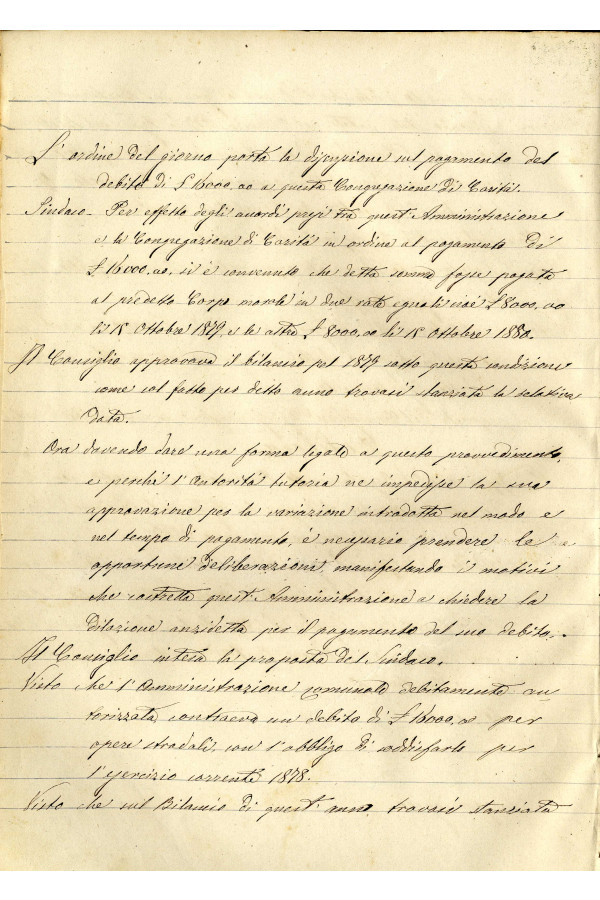 L'ordine del giorno porta la discussione sul pagamento del
debito di £ 16000,00 a questa Congregazione di Carità.
Sindaco - Per effetto degli accordi presi tra quest'Amministrazione
e la Congregazione di Carità in ordine al pagamento di
£ 16000,00, si è convenuto che detta somma fosse pagata
al predetto Corpo morale in due rate eguali cioè £ 8000,00
li 15 Ottobre 1879, e le altre £ 8000,00 li 15 Ottobre 1880.
Il Consiglio approvava il bilancio pel 1879 sotto questa condizione
come sul fatto per detto anno trovasi stanziata la relativa
data.
Ora dovendo dare una forma legale a questo provvedimento,
e perchè l'Autorità tutoria ne impedisse la sua
approvazione per la variazione introdotta nel modo e
nel tempo di pagamento, è necessario prendere le
opportune deliberazioni, manifestando i motivi
che costretta quest'Amministrazione a chiedere la
dilazione anzidetta per il pagamento del suo debito.
Il Consiglio intesa la proposta del Sindaco.
Visto che l'Amministrazione comunale debitamente au-
torizzata contraeva un debito di £ 16000,00 per
opere stradali, con l'obbligo di soddisfarlo per
l'esercizio corrente 1878.
Visto che sul Bilancio di quest'anno trovasi stanziata